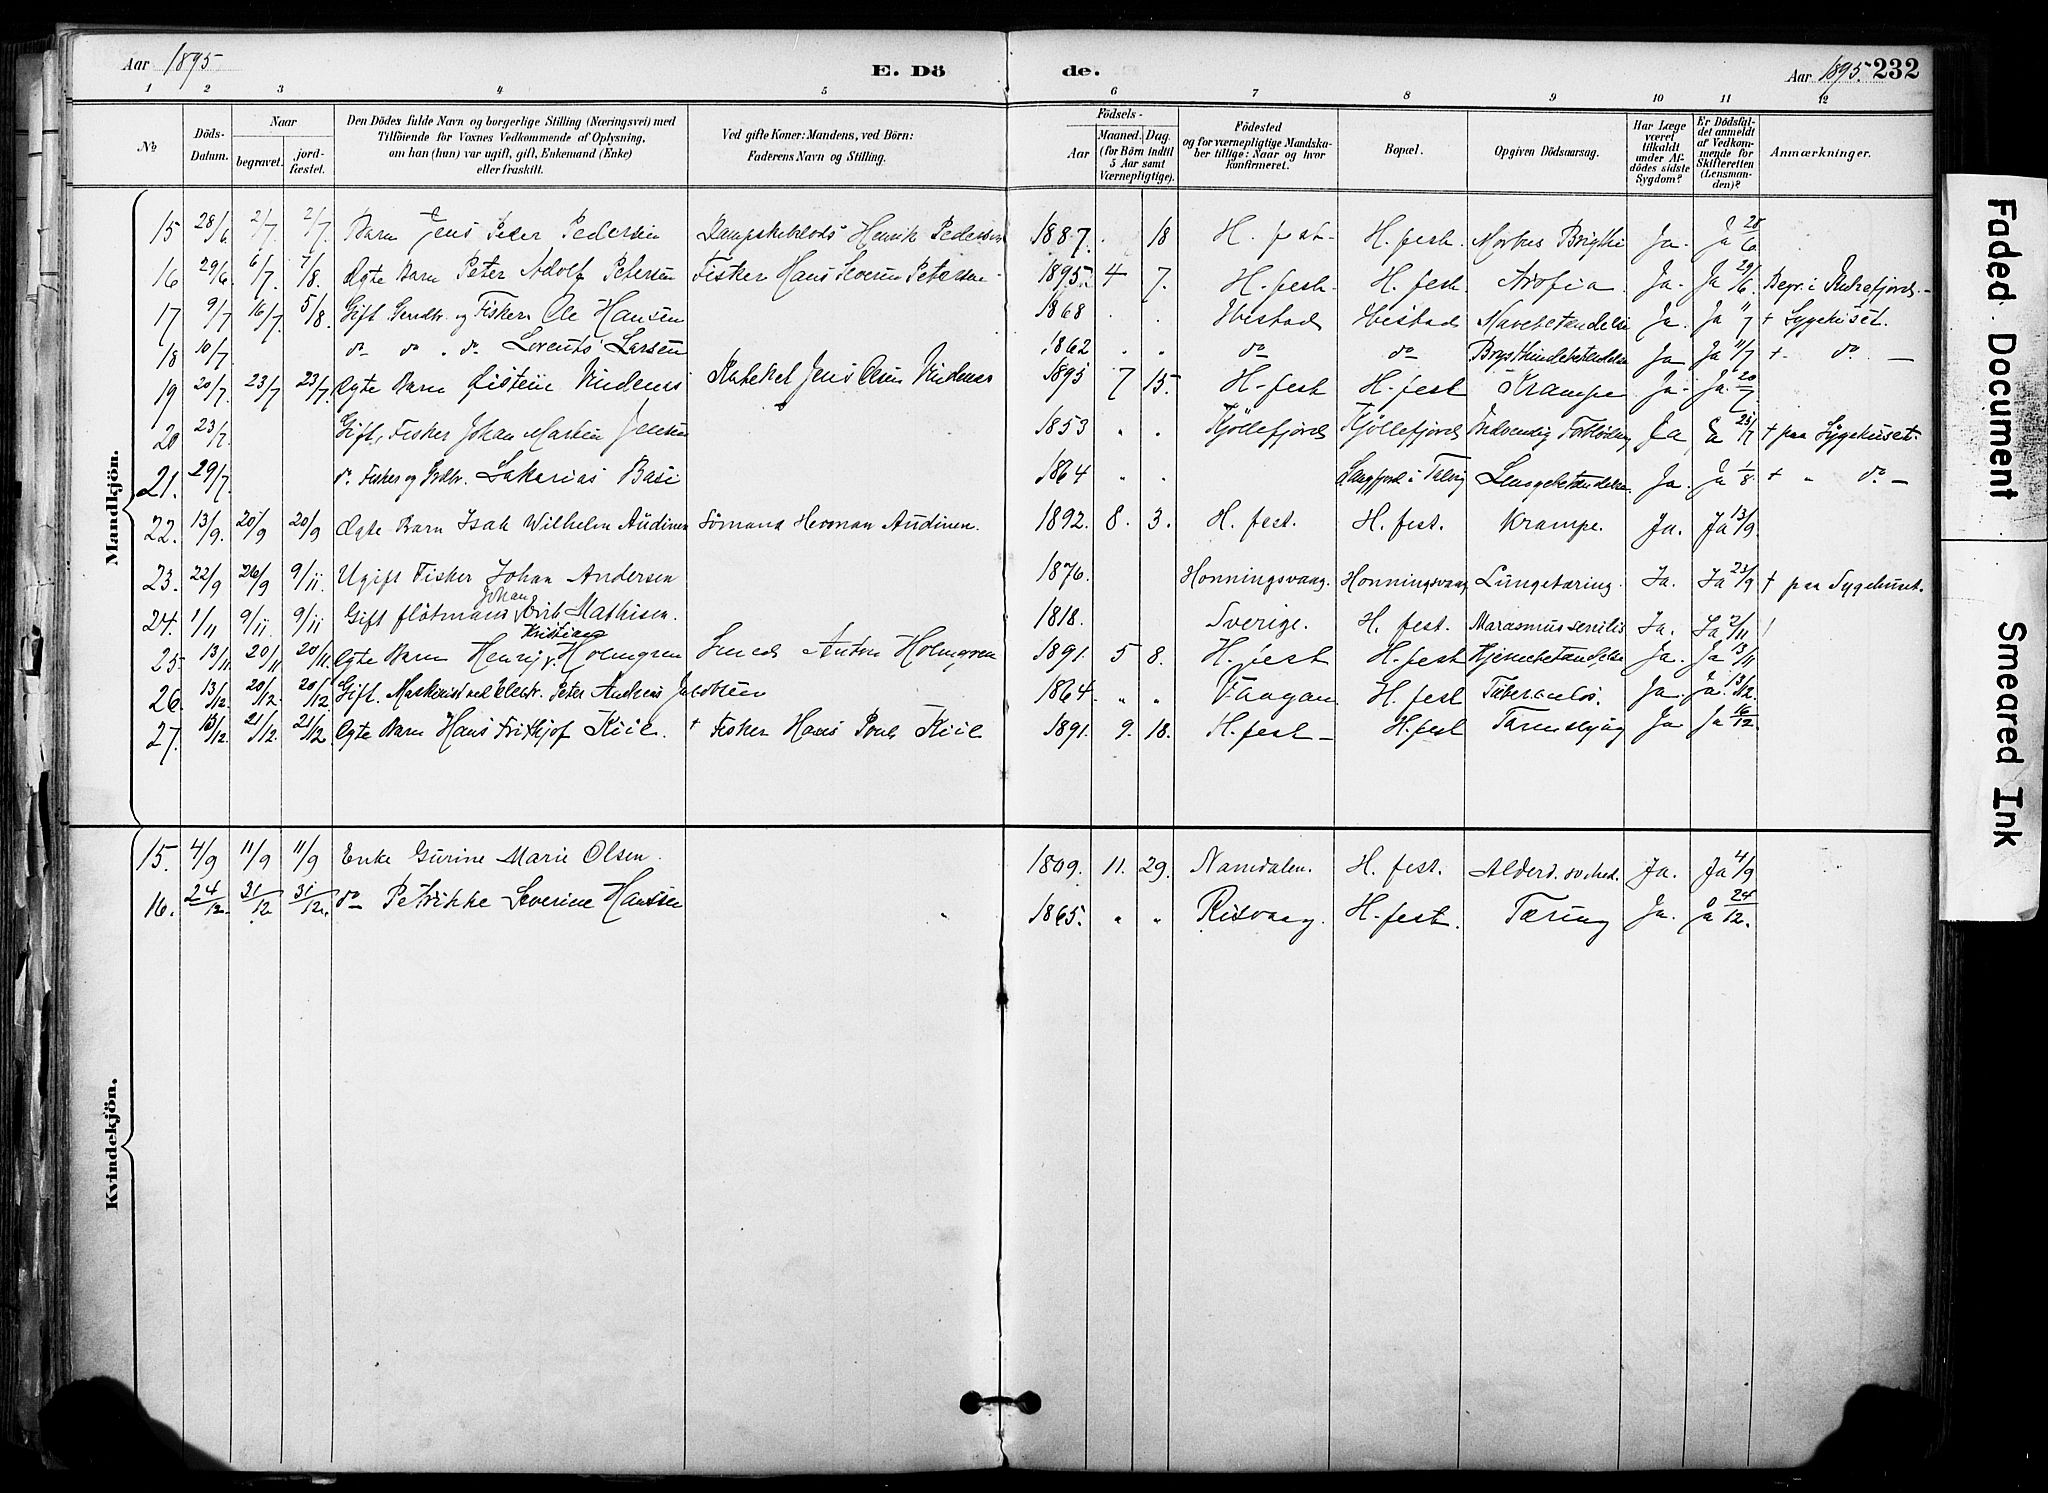 Aar 1895
E. Döde.
Aar 1895. 232
1 2 3 4 5 6 7 8 9 10 11 12
No
Döds-Datum.
Naar begravet. jordfæstet.
Den Dödes fulde Navn og borgerlige Stilling (Næringsvei) med Tilföiende for Voxnes Vedkommende af Oplysning, om han (hun) var ugift, gift, Enkemand (Enke) eller fraskilt.
Ved gifte Koner: Mandens, ved Börn: Faderens Navn og Stilling.
Födsels- Aar Maaned. Dag. (for Börn indtil 5 Aar samt Værnepligtige).
Födested og for værnepligtige Mandskaber tillige: Naar og hvor konfirmeret.
Bopæl.
Opgiven Dödsaarsag.
Har Læge været tilkaldt under Afdödes sidste Sygdom?
Er Dödsfaldet anmeldt af Vedkommende for Skifteretten (Lensmanden)?
Anmærkninger.
Mandkjön.
15 28/6 2/7 2/7 Barn Jens Peter Pedersen Henrik Pedersen 1887. . 18 H. fest. H. fest. Ja. Ja 28/6
16 29/6 6/7 7/8 Ægte Barn Peter Adolf Petersen Fisker Hans Severin Petersen 1895. 4 7. H. fest. H. fest. Atrofia. Ja. Ja 29/6 Begr. i
17 9/7 16/7 5/8 Gift Gaardbr. og Fisker Ole Hansen 1868 . . Ibestad Ibestad Mavebetændelse Ja. Ja 11/7 + Sygehuset.
18 10/7 do do " do Lorents Larsen 1862 " " do do Brysthindebetændelse Ja Ja 11/7 + do
19 20/7 23/7 23/7 Ægte Barn Øistein Vindenes Kateket Jens Olsen Vindenes 1895 7 15. H-fest H-fest Krampe Ja. Ja. 20/7
20 23/7 Gift, Fisker Johan Martin Jensen 1853 " " Kjöllefjord Kjöllefjord Indvendig Forblödning Ja Ja 23/7 + paa Sygehuset.
21. 29/7. do Fisker og Grdbr. Sakarias Basi 1864 " . Langfjord i Talvig Lungebetændelse. Ja. Ja 1/8 + " do
22. 13/9. 20/9 20/9 Ægte Barn Isak Wilhelm Audinen Sömand Herman Audinen. 1892. 8. 3. H. fest. H. fest. Krampe. Ja. Ja 13/9.
23. 22/9 26/9 9/11 Ugift Fisker Johan Andersen 1876. Honningsvaag. Honningsvaag Lungetæring. Ja. Ja 23/9 + paa Sygehuset.
24. 1/11 9/11. 9/11 Gift flötmand Johan Erik Mathisen. 1818. Sverige. H. fest. Marasmus senilis Ja. Ja 2/11
25. 13/11 20/11 20/11. Ægte Barn Henrig Kristian Holmgren Smed Anton Holmgren 1891. 5 8. H. fest H. fest Hjernebetændelse Ja. Ja 13/11
26. 13/12. 20/12. 20/12 Gift. Maskinist ved Elektr. Peter Andreas Jacobsen 1864. " " Vaagan H. fest Tuberculos. Ja. Ja. 13/12.
27. 13/12. 21/12. 21/12 Ægte Barn Hans Frithjof Kiil. + Fisker Hans Poul Kiil 1891. 9. 18. H. fest H. fest Tarmslyng Ja Ja 16/12.
Kvindekjön.
15. 4/9 11/9 11/9 Enke Gurine Marie Olsen. 1809. 11. 29. Namdalen. H. fest. Alderd. svahed. Ja. Ja 4/9
16. 24/12. 31/12 31/12. do Petrikke Severine Hansen 1865. " " Risvaag. H. fest. Tæring Ja. Ja 24/12.
Faded Document
Smeared Ink